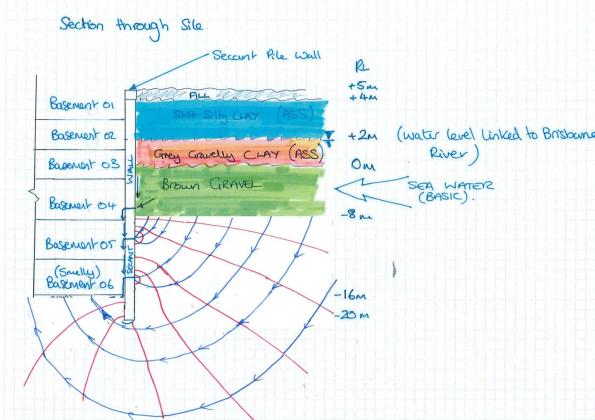 Section through Site.
Secant Pile Wall
RL
+5m
FILL
+4m
Basement 01
Soft Silty CLAY (ASS)
Basement 02
+2m (water level linked to Brisbane
River)
Grey Gravelly CLAY (ASS)
Basement 03
0m
WALL
Brown GRAVEL
SEA WATER
(BASIC).
Basement 04
-8m
Basement 05
SECANT
(Smelly)
Basement 06
-16m
-20m